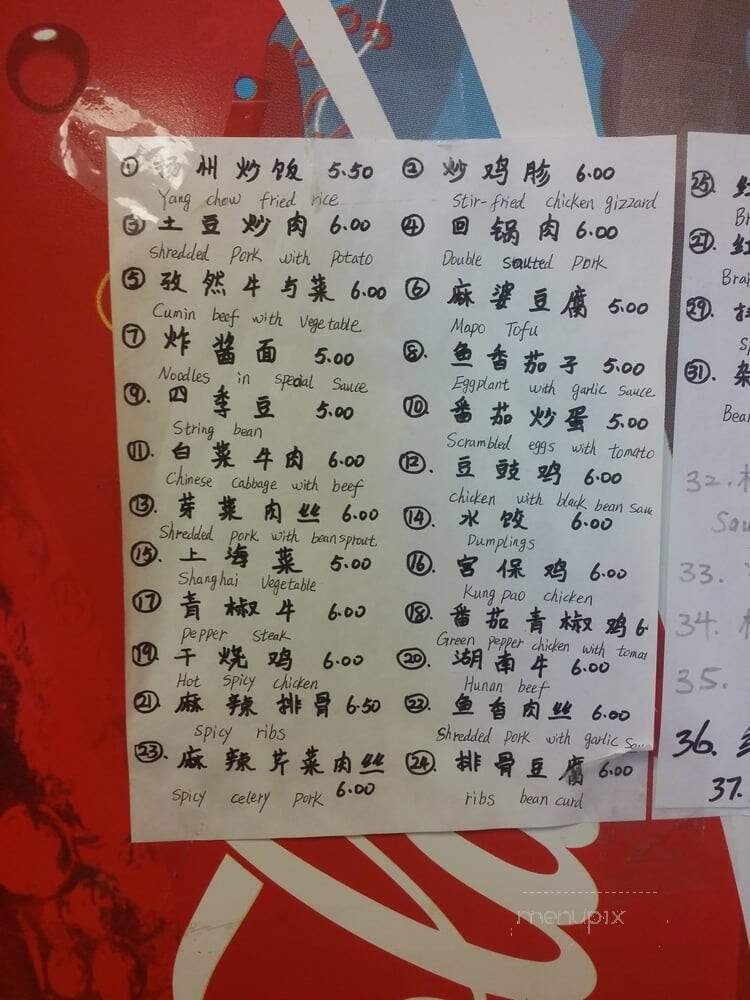 ① 扬州炒饭 5.50
Yang chow fried rice
② 炒鸡胗 6.00
Stir-fried chicken gizzard
③ 土豆炒肉 6.00
Shredded Pork with Potato
④ 回锅肉 6.00
Double sautted pork
⑤ 孜然牛与菜 6.00
Cumin beef with Vegetable
⑥ 麻婆豆腐 5.00
Mapo Tofu
⑦ 炸酱面 5.00
Noodles in special Sauce
⑧. 鱼香茄子 5.00
Eggplant with garlic sauce
⑨. 四季豆 5.00
String bean
⑩ 番茄炒蛋 5.00
Scrambled eggs with tomato
⑪. 白菜牛肉 6.00
Chinese cabbage with beef
⑫. 豆豉鸡 6.00
chicken with black bean sau
⑬. 芽菜肉丝 6.00
Shredded pork with beansprout
⑭. 水饺 6.00
Dumplings
⑮. 上海菜 5.00
Shanghai Vegetable
⑯. 宫保鸡 6.00
Kung pao chicken
⑰ 青椒牛 6.00
pepper steak
⑱. 番茄青椒鸡 6.
Green pepper chicken with tomat
⑲. 干烧鸡 6.00
Hot spicy chicken
⑳. 湖南牛 6.00
Hunan beef
㉑. 麻辣排骨 6.50
spicy ribs
㉒. 鱼香肉丝 6.00
Shredded pork with garlic Sau
㉓. 麻辣芹菜肉丝 6.00
spicy celery pork
㉔. 排骨豆腐 6.00
ribs bean curd
㉕. 红
Br
㉗. 红
Brai
㉙.
Sp
㉛. 杂
Bean
32.
Sau
33.
34.
35.
36.
37.
menupix